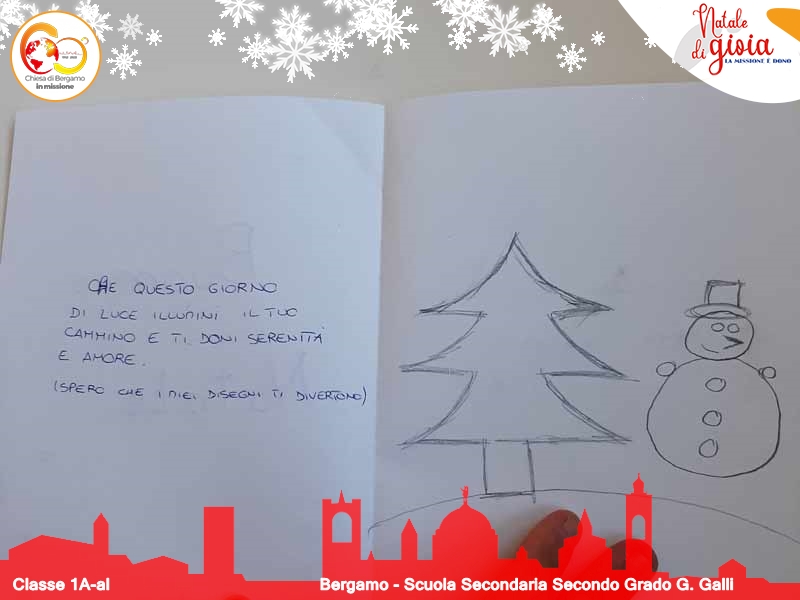 Chiesa di Bergamo
in missione
Natale
di gioia
LA MISSIONE È DONO
CHE QUESTO GIORNO
DI LUCE ILLUMINI IL TUO
CAMMINO E TI DONI SERENITÀ
E AMORE.
(SPERO CHE I MIEI DISEGNI TI DIVERTONO)
Classe 1A-al
Bergamo - Scuola Secondaria Secondo Grado G. Galli